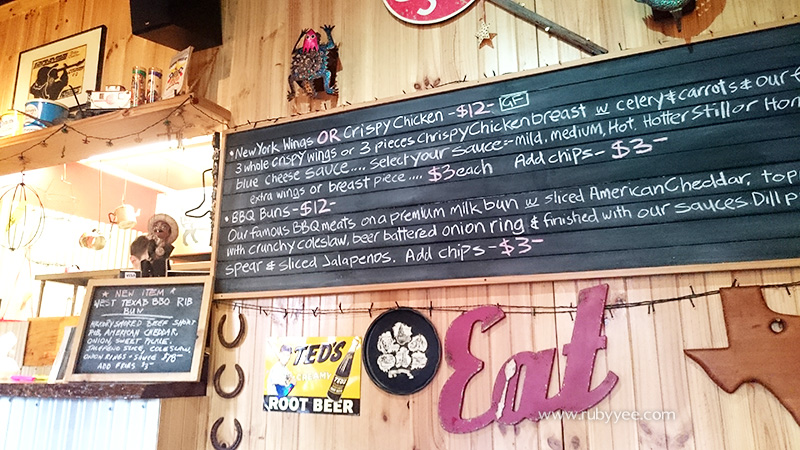 • New York Wings OR Crispy Chicken - $12 - GF
3 whole crispy wings or 3 pieces chrispy Chicken breast w celery & carrots & our
blue cheese sauce .... Select your sauce:- mild, medium, Hot, Hotter Still or
extra wings or breast piece .... $3 each Add chips - $3-
• BBQ Buns - $12-
Our famous BBQ meats on a premium milk bun w sliced American Cheddar,
with crunchy coleslaw, beer battered onion ring & finished with our sauces. Dill
spear & sliced Jalapenos. Add chips - $3-
★ NEW ITEM ★
WEST TEXAS BBQ RIB
BUN
HICKORY SMOKED BEEF SHORT
RIB, AMERICAN CHEDDAR,
ONION, SWEET PICKLE,
COLESLAW,
ONION RINGS + SAUCE
ADD FRIES $3-
TED'S
CREAMY
ROOT BEER
Eat
www.rubyyee.com